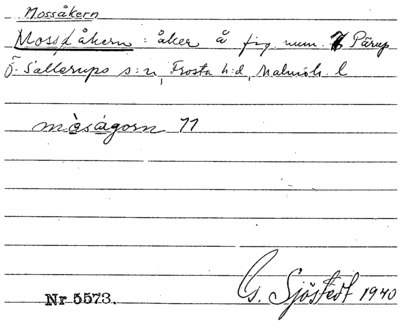 Mossåkern
Mossåkern : åker å fig. num. 7 Pårup
Ö. Sallerups s:n, Frosta h:d, Malmöh. l
mòsågorn 11
Nr 5573.
G. Sjöstedt 1940